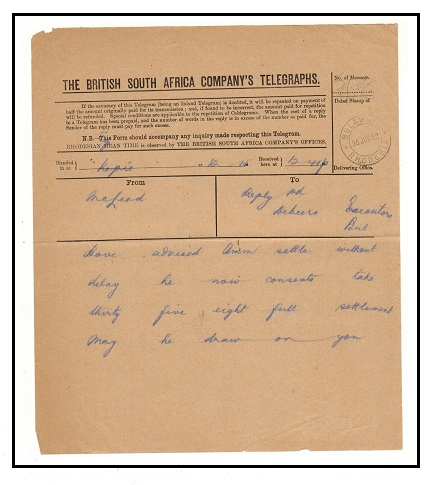 THE BRITISH SOUTH AFRICA COMPANY'S TELEGRAPHS.
No. of Message.
Dated Stamp of
If the accuracy of this Telegram (being an Inland Telegram) is doubted, it will be repeated on payment of
half the amount originally paid for its transmission; and, if found to be incorrect, the amount paid for repetition
will be refunded. Special conditions are applicable to the repetition of Cablegrams. When the cost of a reply
to a Telegram has been prepaid, and the number of words in the reply is in excess of the number paid for, the
Sender of the reply must pay for such excess.
N.B.—This Form should accompany any inquiry made respecting this Telegram.
RHODESIAN MEAN TIME is observed by THE BRITISH SOUTH AFRICA COMPANY'S OFFICES.
Handed in at
at
Received here at
Delivering Office.
From To
McLeod Reply Pd
Executor
Bul
Have advised settle without
delay he now consents take
thirty five eight full settlement
May he draw on you